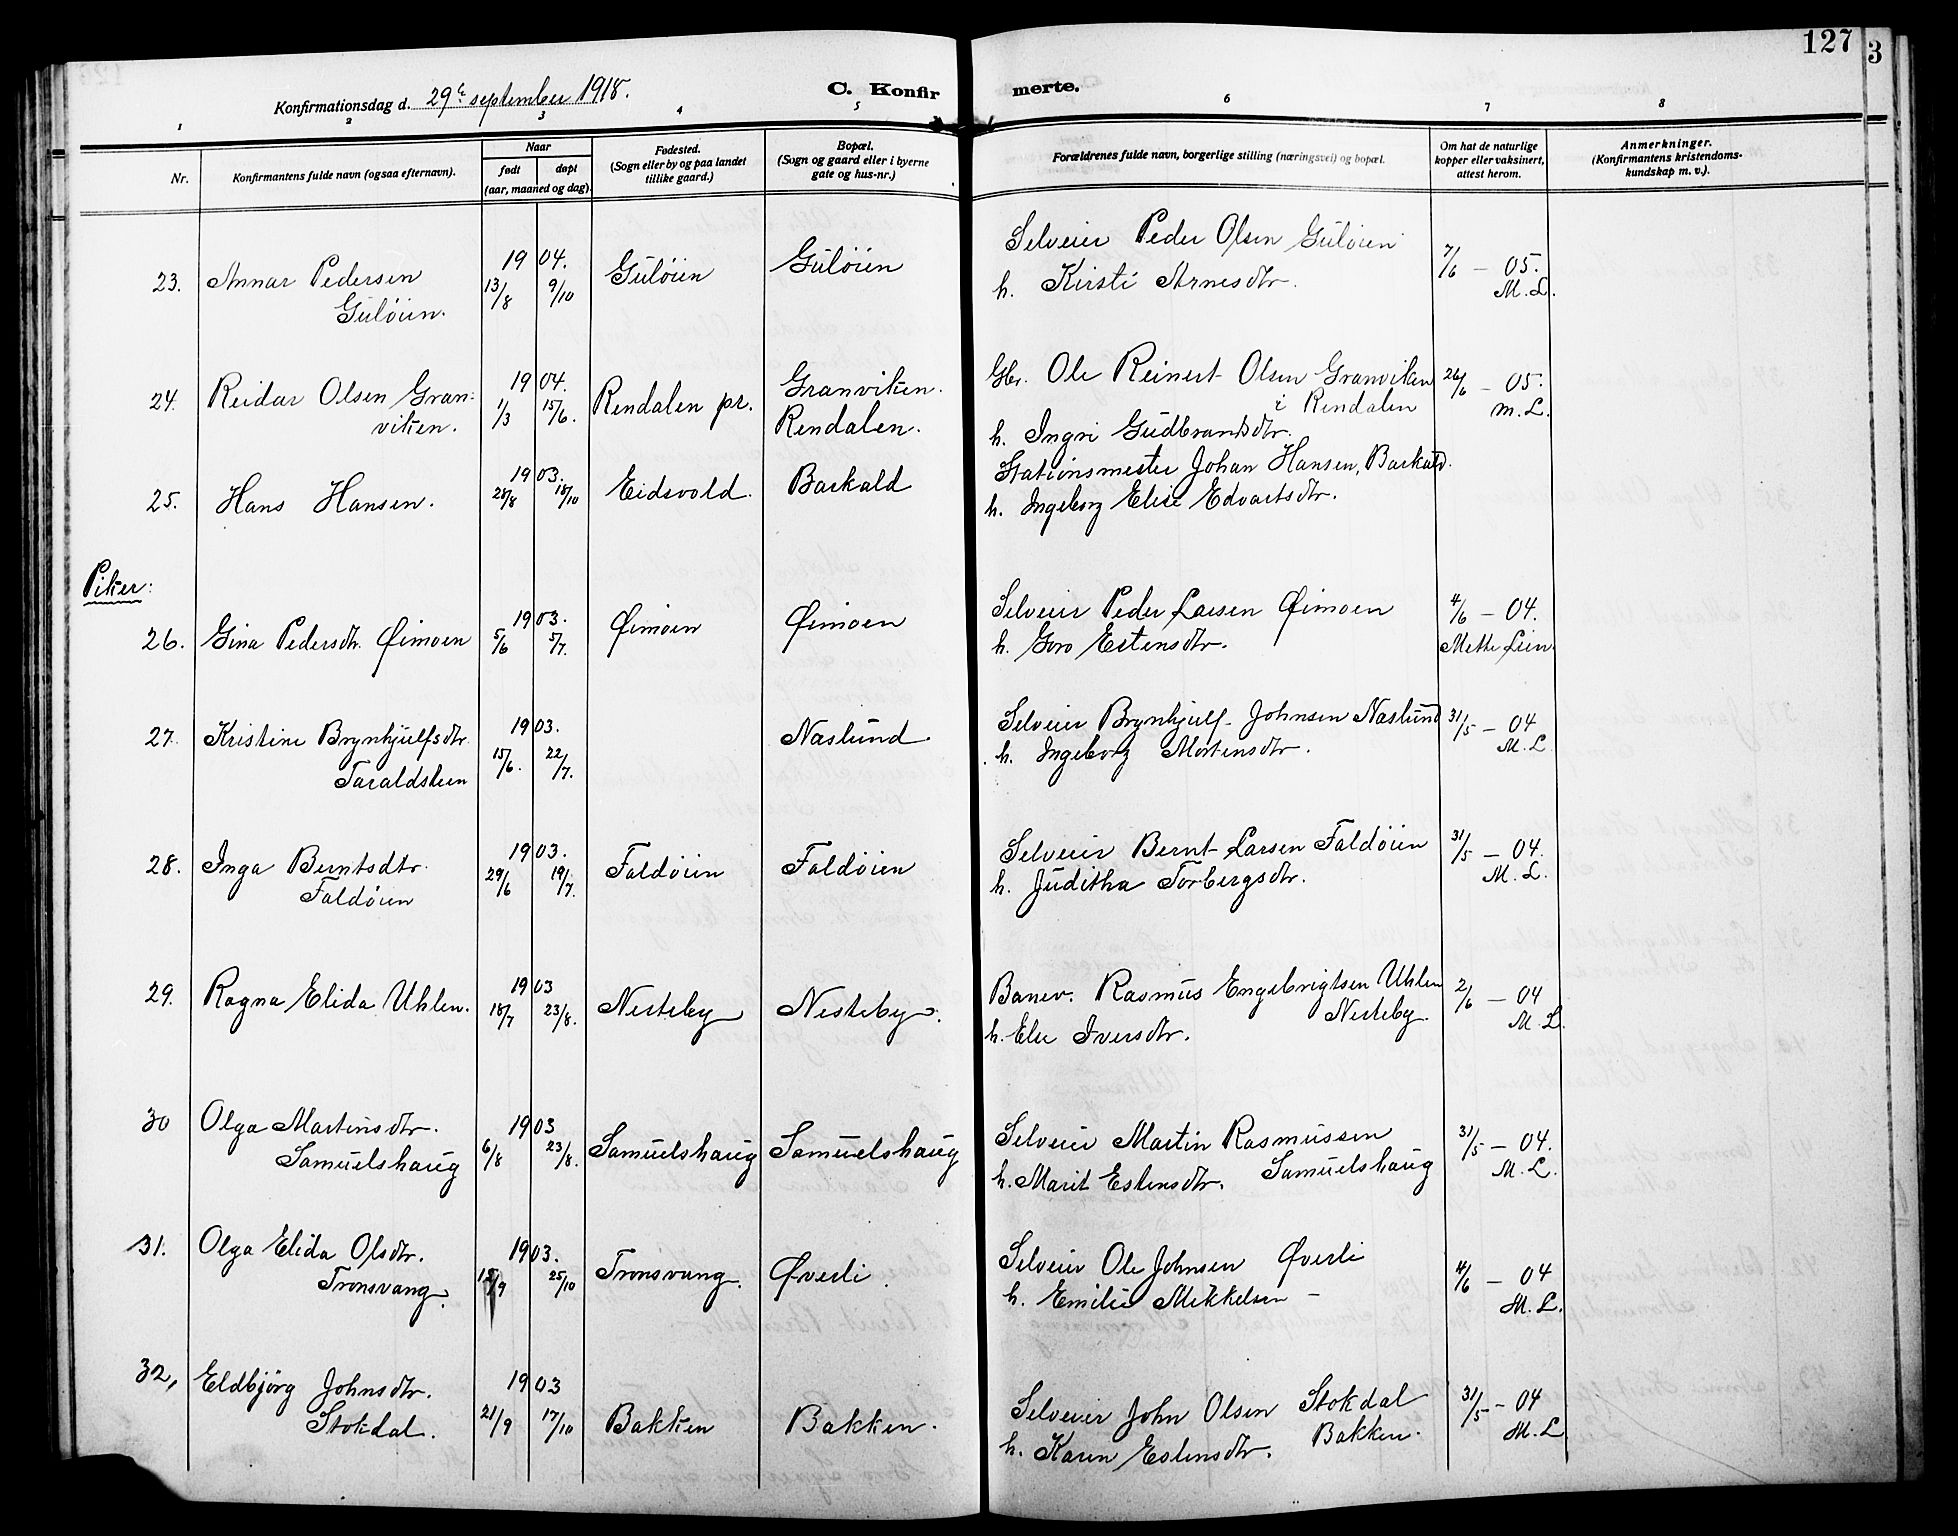 127
3
Konfirmationsdag d. 29de september 1918.
C. Konfirmerte.
1 2 3 4 5 6 7 8
Nr.
Konfirmantens fulde navn (ogsaa efternavn).
Naar
født døpt
(aar, maaned og dag).
Fødested.
(Sogn eller by og paa landet
tillike gaard.)
Bopæl.
(Sogn og gaard eller i byerne
gate og hus-nr.)
Forældrenes fulde navn, borgerlige stilling (næringsvei) og bopæl.
Om hat de naturlige
kopper eller vaksinert,
attest herom.
Anmerkninger.
(Konfirmantens kristendoms-
kundskap m. v.).
23. Annar Pedersen
Guløien.
1904.
13/8 9/10
Guløien
Guløien
Selveier Peder Olsen Guløien
h. Kirsti Arnesdtr.
7/6 – 05.
M. L.
24. Reidar Olsen Gran=
viken.
1904.
1/3 15/6.
Rendalen pr.
Granviken.
Rendalen.
Gbr. Ole Reinert Olsen Granviken
i Rendalen
h. Ingri Gudbrandsdtr.
26/6 – 05.
M. L.
25. Hans Hansen.
1903.
28/8 18/10
Eidsvold.
Barkald
Stationsmester Johan Hansen, Barkald.
h. Ingeborg Elise Edvartsdtr.
Piker:
26. Gina Pedersdtr. Øimoen
1903.
5/6 5/7.
Øimoen
Øimoen
Selveier Peder Larsen Øimoen
h. Goro Estensdtr.
4/6 – 04.
Mette Lien.
27. Kristine Brynhjulfsdtr.
Taraldsteen
1903.
15/6. 22/7.
Naslund.
Selveier Brynhjulf Johnsen Naslund
h. Ingeborg Mortensdtr.
31/5 – 04
M. L.
28. Inga Berntsdtr.
Faldøien
1903.
29/6 19/7.
Faldøien
Faldøien
Selveier Bernt Larsen Faldøien
h. Juditha Torbergsdtr.
31/5 – 04.
M. L.
29. Ragna Elida Uhlen.
1903
18/7 23/8.
Nesteby
Nesteby.
Banev. Rasmus Engebrigtsen Uhlen
Nesteby
h. Else Iversdtr.
2/6 – 04
M. L.
30 Olga Martinsdtr.
Samuelshaug
1903
6/8 23/8.
Samuelshaug
Samuelshaug
Selveier Martin Rasmussen
Samuelshaug
h. Marit Estensdtr.
31/5 – 04.
M. L.
31. Olga Elida Olsdtr.
Tronsvang.
1903.
/9 25/10
Tronsvang.
Øverli.
Selveier Ole Johnsen Øverli
h. Emilie Mikkelsen –
4/6 – 04
M. L.
32, Eldbjörg Johnsdtr.
Stokdal.
1903
21/9 17/10
Bakken
Bakken.
Selveier John Olsen Stokdal
Bakken.
h. Karen Estensdtr.
31/5 – 04
M. L